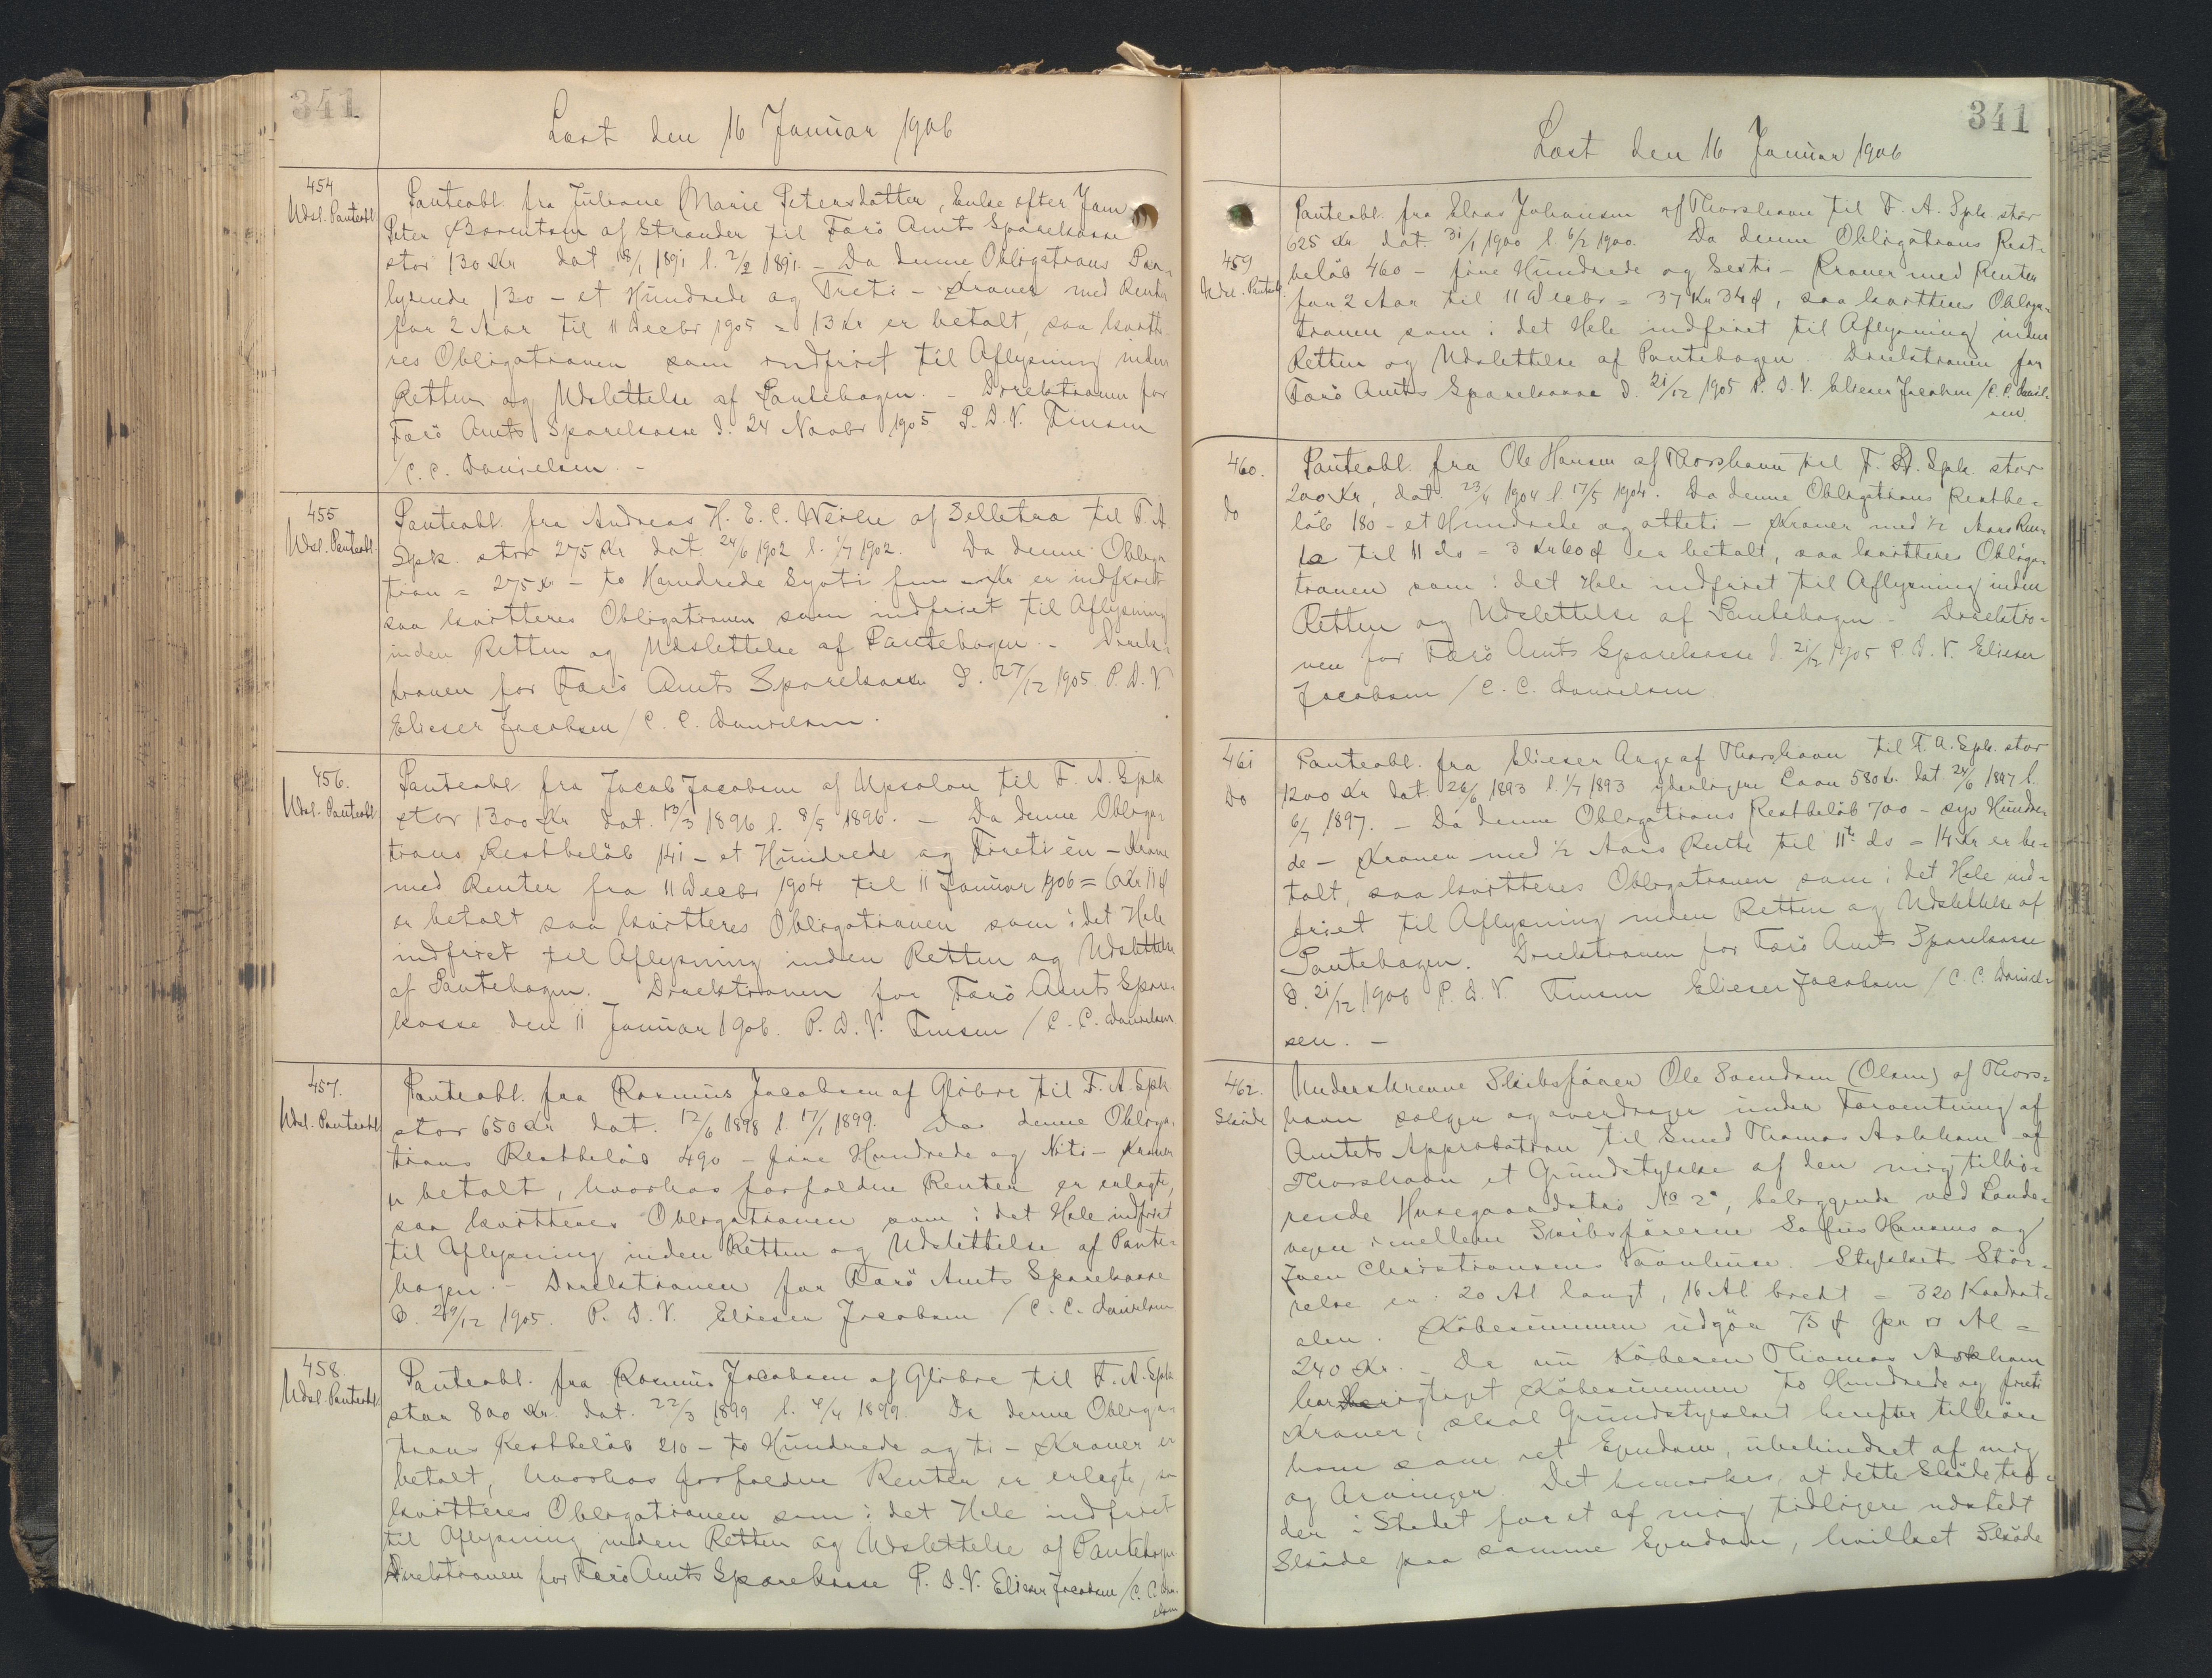 341
Læst den 16 Januar 1906
454
Udsl. Panteobl.
Panteobl. fra Juliane Marie Petersdatter, Enke efter Jam
Peter Barentsen af Strænder til Færö Amts Sparekasse
stor 130 Kr dat 18/1 1891 l. 2/2 1891. - Da denne Obligations Paa-
lydende 130 - et Hundrede og Treti - Kroner med Renter
for 2 Aar til 11 Decbr 1905 = 13 Kr er betalt, saa kvitte-
res Obligationen som indfriet til Aflysning inden
Retten og Udslettelse af Pantebogen. - Direktionen for
Færö Amts Sparekasse d. 24 Novbr 1905 P. D. V. Finsen
/C. C. Danielsen. -
455
Udsl. Panteobl.
Panteobl. fra Andreas H. E. C. Weihe af Selletræ til F. A.
Spk. stor 275 Kr dat. 24/6 1902 l. 1/7 1902. Da denne Obliga-
tion = 275 Kr - to Hundrede Syvti fem - Kr er indfriet
saa kvitteres Obligationen som indfriet til Aflysning
inden Retten og Udslettelse af Pantebogen. - Direk-
tionen for Færö Amts Sparekasse D. 27/12 1905 P. D. V.
Elieser Jacobsen / C. C. Danielsen.
456.
Udsl. Panteobl
Panteobl fra Jacob Jacobsen af Upsalon til F. A. Spk
stor 1300 Kr dat. 13/3 1896 l. 8/5 1896. - Da denne Obliga-
tions Restbelöb 141 - et Hundrede og Firetien - Krone
med Renter fra 11 Decbr 1904 til 11 Januar 1906 = 6 Kr 11 Ø
er betalt saa kvitteres Obligationen som i det Hele
indfriet til Aflysning inden Retten og Udslettelse
af Pantebogen. Direktionen for Færö Amts Spare-
kasse den 11 Januar 1906. P. D. V. Finsen / C. C. Danielsen
457.
Udsl. Panteobl
Panteobl. fra Rasmus Jacobsen af Glibre til F. A. Spk
stor 650 Kr dat. 12/6 1898 l. 17/1 1899. Da denne Obliga-
tions Restbelöb 490 - fire Hundrede og Niti - Kroner
er betalt, hvorhos forfaldne Renter er erlagte,
saa kvitteres Obligationen som i det Hele indfriet
til Aflysning inden Retten og Udslettelse af Pante-
bogen. - Direktionen for Færö Amts Sparekasse
D. 29/12 1905. P. D. V. Elieser Jacobsen / C. C. Danielsen
458.
Udsl. Panteobl
Panteobl. fra Rasmus Jacobsen af Glibre til F. A. Spk
stor 800 Kr. dat. 22/3 1899 l. 4/4 1899. Da denne Obliga-
tions Restbelöb 210 - to Hundrede og ti - Kroner er
betalt, hvorhos forfaldne Renter er erlagte, saa
kvitteres Obligationen som i det Hele indfriet
til Aflysning inden Retten og Udslettelse af Pantebogen
Direktionen for Færö Amts Sparekasse P. D. V. Elieser Jacobsen / C. C. Dani-
elsen
341
Læst den 16 Januar 1906
459
Udsl. Panteobl.
Panteobl. fra Claas Johansen af Thorshavn til F. A. Spk. stor
625 Kr. dat. 31/1 1900 l. 6/2 1900. Da denne Obligations Rest-
belöb 460 - fire Hundrede og Sexti - Kroner med Renter
for 2 Aar til 11 Decbr = 37 Kr 34 Ø, saa kvitteres Obliga-
tionen som i det Hele indfriet til Aflysning inden
Retten og Udslettelse af Pantebogen. Direktionen for
Færö Amts Sparekasse D. 21/12 1905 P. D. V. Elieser Jacobsen / C. C. Daniel-
sen
460.
do
Panteobl. fra Ole Hansen af Thorshavn til F. A. Spk. stor
200 Kr, dat. 23/4 1904 l. 17/5 1904. Da denne Obligations Restbe-
löb 180 - et Hundrede og otteti - Kroner med 1/2 Aars Ren-
te til 11 ds = 3 Kr 60 Ø er betalt, saa kvitteres Obliga-
tionen som i det Hele indfriet til Aflysning inden
Retten og Udslettelse af Pantebogen - Direktio-
nen for Færö Amts Sparekasse d. 21/12 1905 P. D. V. Elieser
Jacobsen / C. C. Danielsen
461
Do
Panteobl. fra Elieser Arge af Thorshavn til F. A. Spk. stor
1200 Kr dat. 26/6 1893 l. 1/7 1893 yderligere Laan 580 Kr. dat 24/6 1897 l.
6/7 1897. - Da denne Obligations Restbelöb 700 - syv Hundre-
de - Kroner med 1/2 Aars Rente til 11te ds = 14 Kr er be-
talt, saa kvitteres Obligationen som i det Hele ind-
friet til Aflysning inden Retten og Udslettelse af
Pantebogen. Direktionen for Færö Amts Sparekasse
D. 21/12 1906 P. D. V. Finsen Elieser Jacobsen / C. C. Daniel-
sen. -
462.
Skøde
Underskrevne Skibsförer Ole Svendsen (Olsen) af Thors-
havn sælger og overdrager under Forventning af
Amtets Approbation til Smed Thomas Askham af
Thorshavn et Grundstykke af den mig tilhö-
rende Husegaardstas No 2a, beliggende ved Lande-
vegen imellem Skibsförerne Sofus Hansens og
Joen Christiansens Vaanhuse. Stykkets Stör-
relse er: 20 Al langt, 16 Al bredt = 320 Kvadrat-
alen. Köbesummen udgör 75 Ø pr □ Al =
240 Kr. - Da nu Köberen Thomas Askham
har berigtiget Köbesummen to Hundrede og fireti
Kroner, skal Grundstykket herefter tilhöre
ham som ret Ejendom, ubehindret af mig
og Arvinger. Det bemærkes, at dette Sköde træ-
der i Stedet for et af mig tidligere udstedt
Sköde paa samme Ejendom, hvilket Sköde